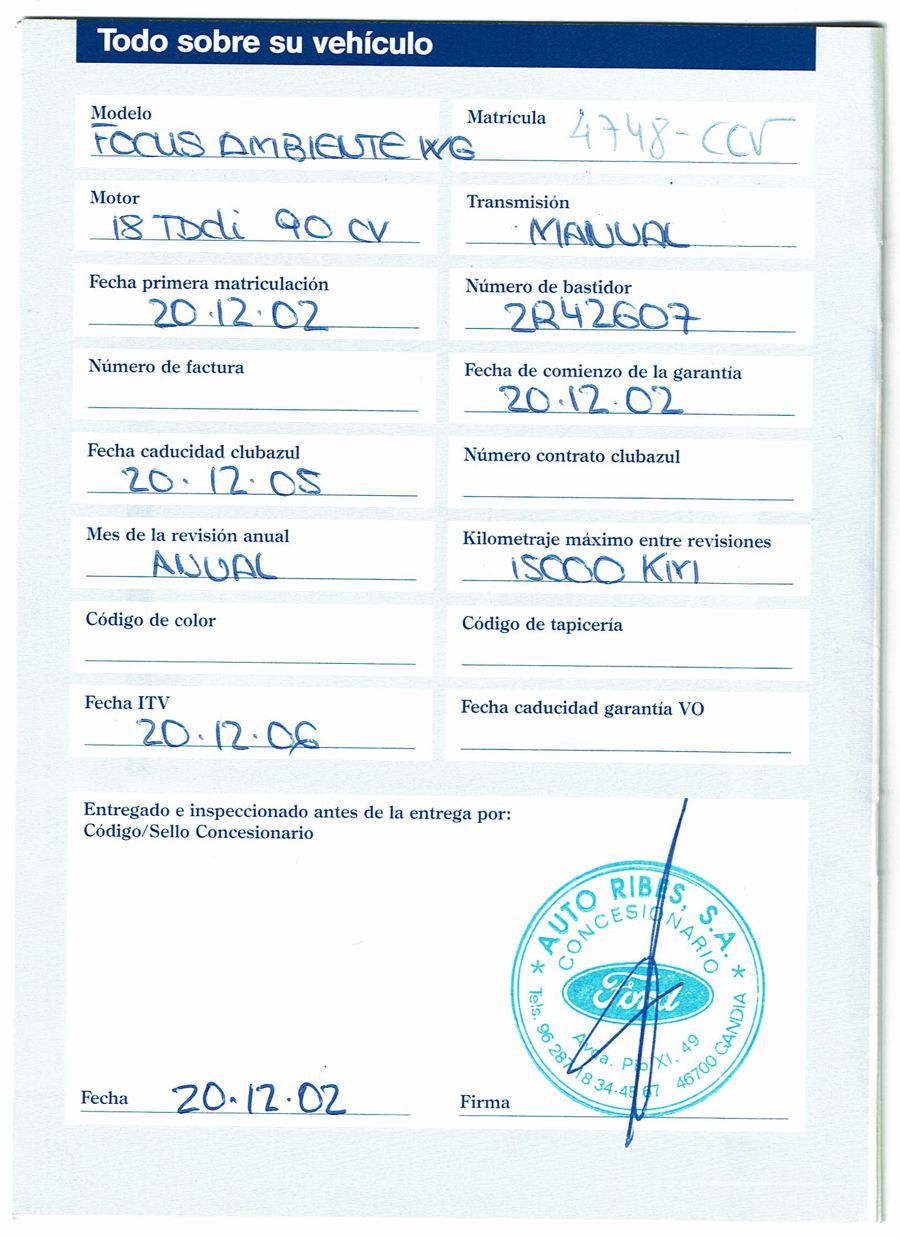 Todo sobre su vehículo
Modelo
FOCUS AMBIENTE WG
Matrícula 4748-CCV
Motor
18 TDdi 90 CV
Transmisión
MANUAL
Fecha primera matriculación
20.12.02
Número de bastidor
2R42607
Número de factura
Fecha de comienzo de la garantía
20.12.02
Fecha caducidad clubazul
20.12.05
Número contrato clubazul
Mes de la revisión anual
ANUAL
Kilometraje máximo entre revisiones
15000 Km
Código de color
Código de tapicería
Fecha ITV
20.12.06
Fecha caducidad garantía VO
Entregado e inspeccionado antes de la entrega por:
Código/Sello Concesionario
* AUTO RIBES, S.A. *
CONCESIONARIO
Ford
Avda. Pío XI, 49
Tels. 96 287 18 34-45 67 46700 GANDIA
Fecha 20.12.02
Firma